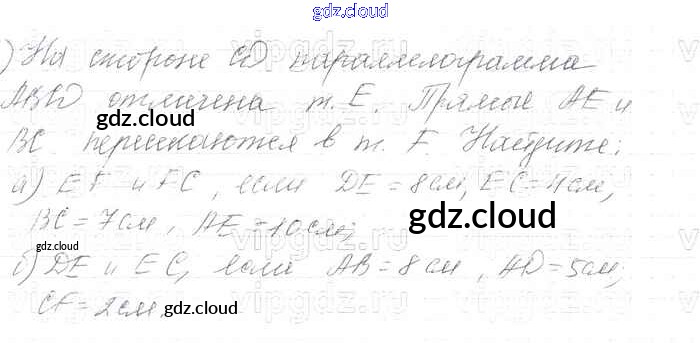 gdz.cloud
) На стороне CD параллелограмма
ABCD отмечена т. E. Прямые AE и
gdz.cloud
BC пересекаются в т. F. Найдите:
а) EF и FC, если DE = 8 см, EC = 4 см,
BC = 7 см, AE = 10 см;
gdz.cloud
gdz.cloud
б) DE и EC, если AB = 8 см, AD = 5 см;
CF = 2 см.
gdz.cloud